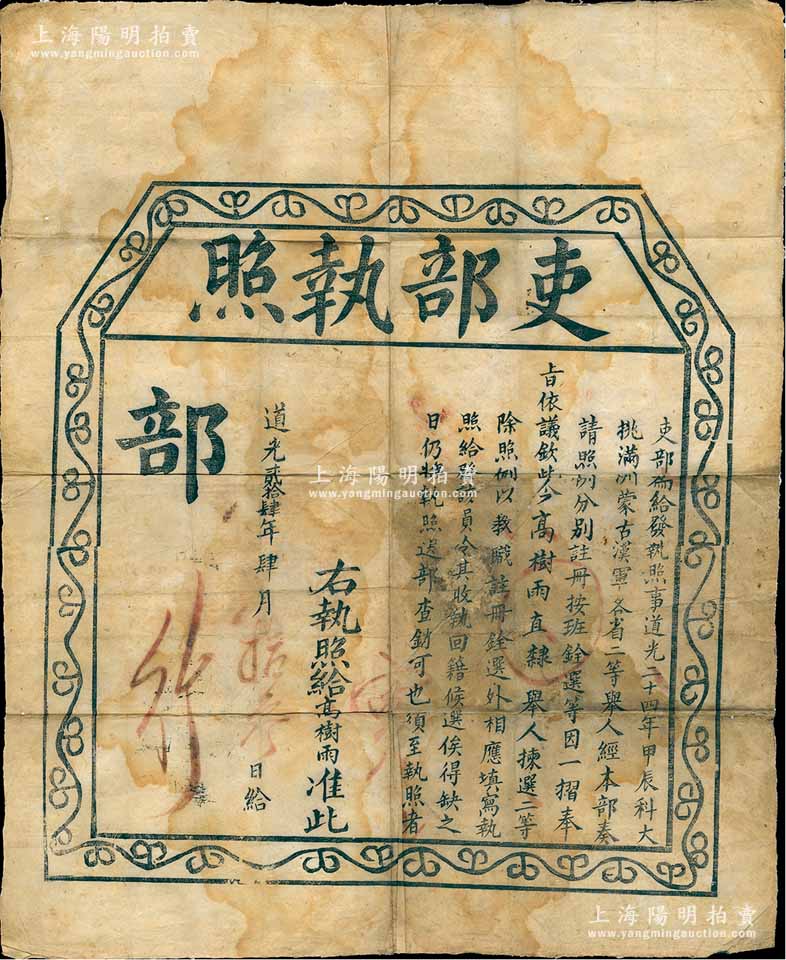 上海陽明拍賣
www.yangmingauction.com
上海陽明拍賣
www.yangmingauction.com
吏部執照
吏部為給發執照事道光二十四年甲辰科大
挑滿洲蒙古漢軍各省二等舉人經本部奏
請照例分別註冊按班銓選等因一摺奉
旨依議欽此今高樹雨直隸舉人揀選二等
除照例以教職註冊銓選外相應填寫執
照給發該員令其收執回籍候選俟得缺之
日仍將執照送部查銷可也須至執照者
右執照給高樹雨准此
道光貳拾肆年肆月日給
部
行
上海陽明拍賣
www.yangmingauction.com
上海陽明拍賣
www.yangmingauction.com